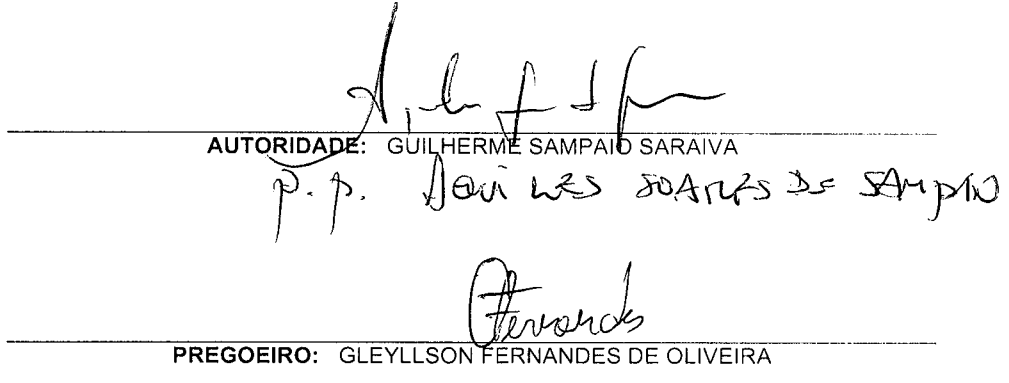 AUTORIDADE: GUILHERME SAMPAIO SARAIVA
p. p. AQUILES SOARES DE SAMPAIO
Fernandes
PREGOEIRO: GLEYLLSON FERNANDES DE OLIVEIRA